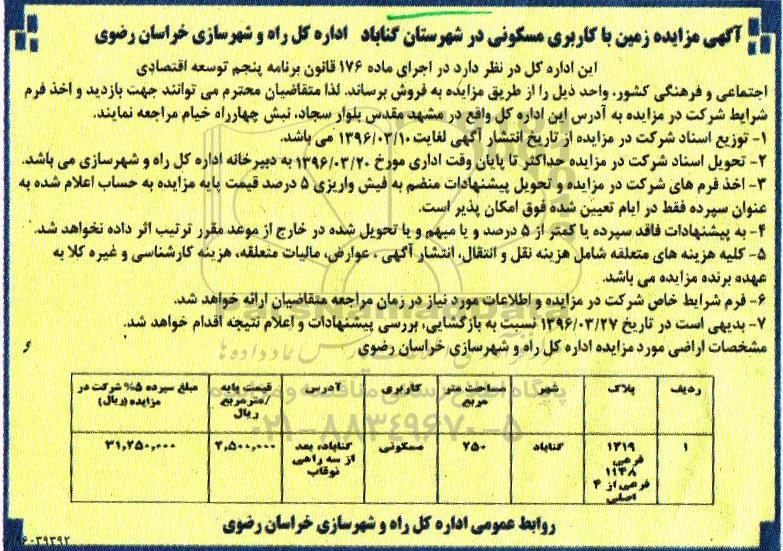 آگهی مزایده زمین با کاربری مسکونی در شهرستان گناباد اداره کل راه و شهرسازی خراسان رضوی
این اداره کل در نظر دارد در اجرای ماده ۱۷۶ قانون برنامه پنجم توسعه اقتصادی
اجتماعی و فرهنگی کشور، واحد ذیل را از طریق مزایده به فروش برساند. لذا متقاضیان محترم می توانند جهت بازدید و اخذ فرم
شرایط شرکت در مزایده به آدرس این اداره کل واقع در مشهد مقدس بلوار سجاد، نبش چهارراه خیام مراجعه نمایند.
۱- توزیع اسناد شرکت در مزایده از تاریخ انتشار آگهی لغایت ۱۳۹۶/۰۳/۱۰ می باشد.
۲- تحویل اسناد شرکت در مزایده حداکثر تا پایان وقت اداری مورخ ۱۳۹۶/۰۳/۲۰ به دبیرخانه اداره کل راه و شهرسازی می باشد.
۳- اخذ فرم های شرکت در مزایده و تحویل پیشنهادات منضم به فیش واریزی ۵ درصد قیمت پایه مزایده به حساب اعلام شده به
عنوان سپرده فقط در ایام تعیین شده فوق امکان پذیر است.
۴- به پیشنهادات فاقد سپرده یا کمتر از ۵ درصد و یا مبهم و یا تحویل شده در خارج از موعد مقرر ترتیب اثر داده نخواهد شد.
۵- کلیه هزینه های متعلقه شامل هزینه نقل و انتقال، انتشار آگهی ، عوارض، مالیات متعلقه، هزینه کارشناسی و غیره کلا به
عهده برنده مزایده می باشد.
۶- فرم شرایط خاص شرکت در مزایده و اطلاعات مورد نیاز در زمان مراجعه متقاضیان ارائه خواهد شد.
۷- بدیهی است در تاریخ ۱۳۹۶/۰۳/۲۷ نسبت به بازگشایی، بررسی پیشنهادات و اعلام نتیجه اقدام خواهد شد.
مشخصات اراضی مورد مزایده اداره کل راه و شهرسازی خراسان رضوی
ردیف پلاک شهر مساحت متر مربع کاربری آدرس قیمت پایه /مترمربع ریال مبلغ سپرده ۵% شرکت در مزایده (ریال)
۱ ۱۲۱۹ فرعی ۱۱۳۸ فرعی از ۴ اصلی گناباد ۲۵۰ مسکونی گناباد، بعد از سه راهی نوقاب ۲,۵۰۰,۰۰۰ ۳۱,۲۵۰,۰۰۰
روابط عمومی اداره کل راه و شهرسازی خراسان رضوی
۹۶۰۳۹۳۹۲
ParsNamadData
پایگاه اطلاع رسانی مناقصه و مزایده
۰۲۱-۸۸۳۴۹۶۷۰-۵